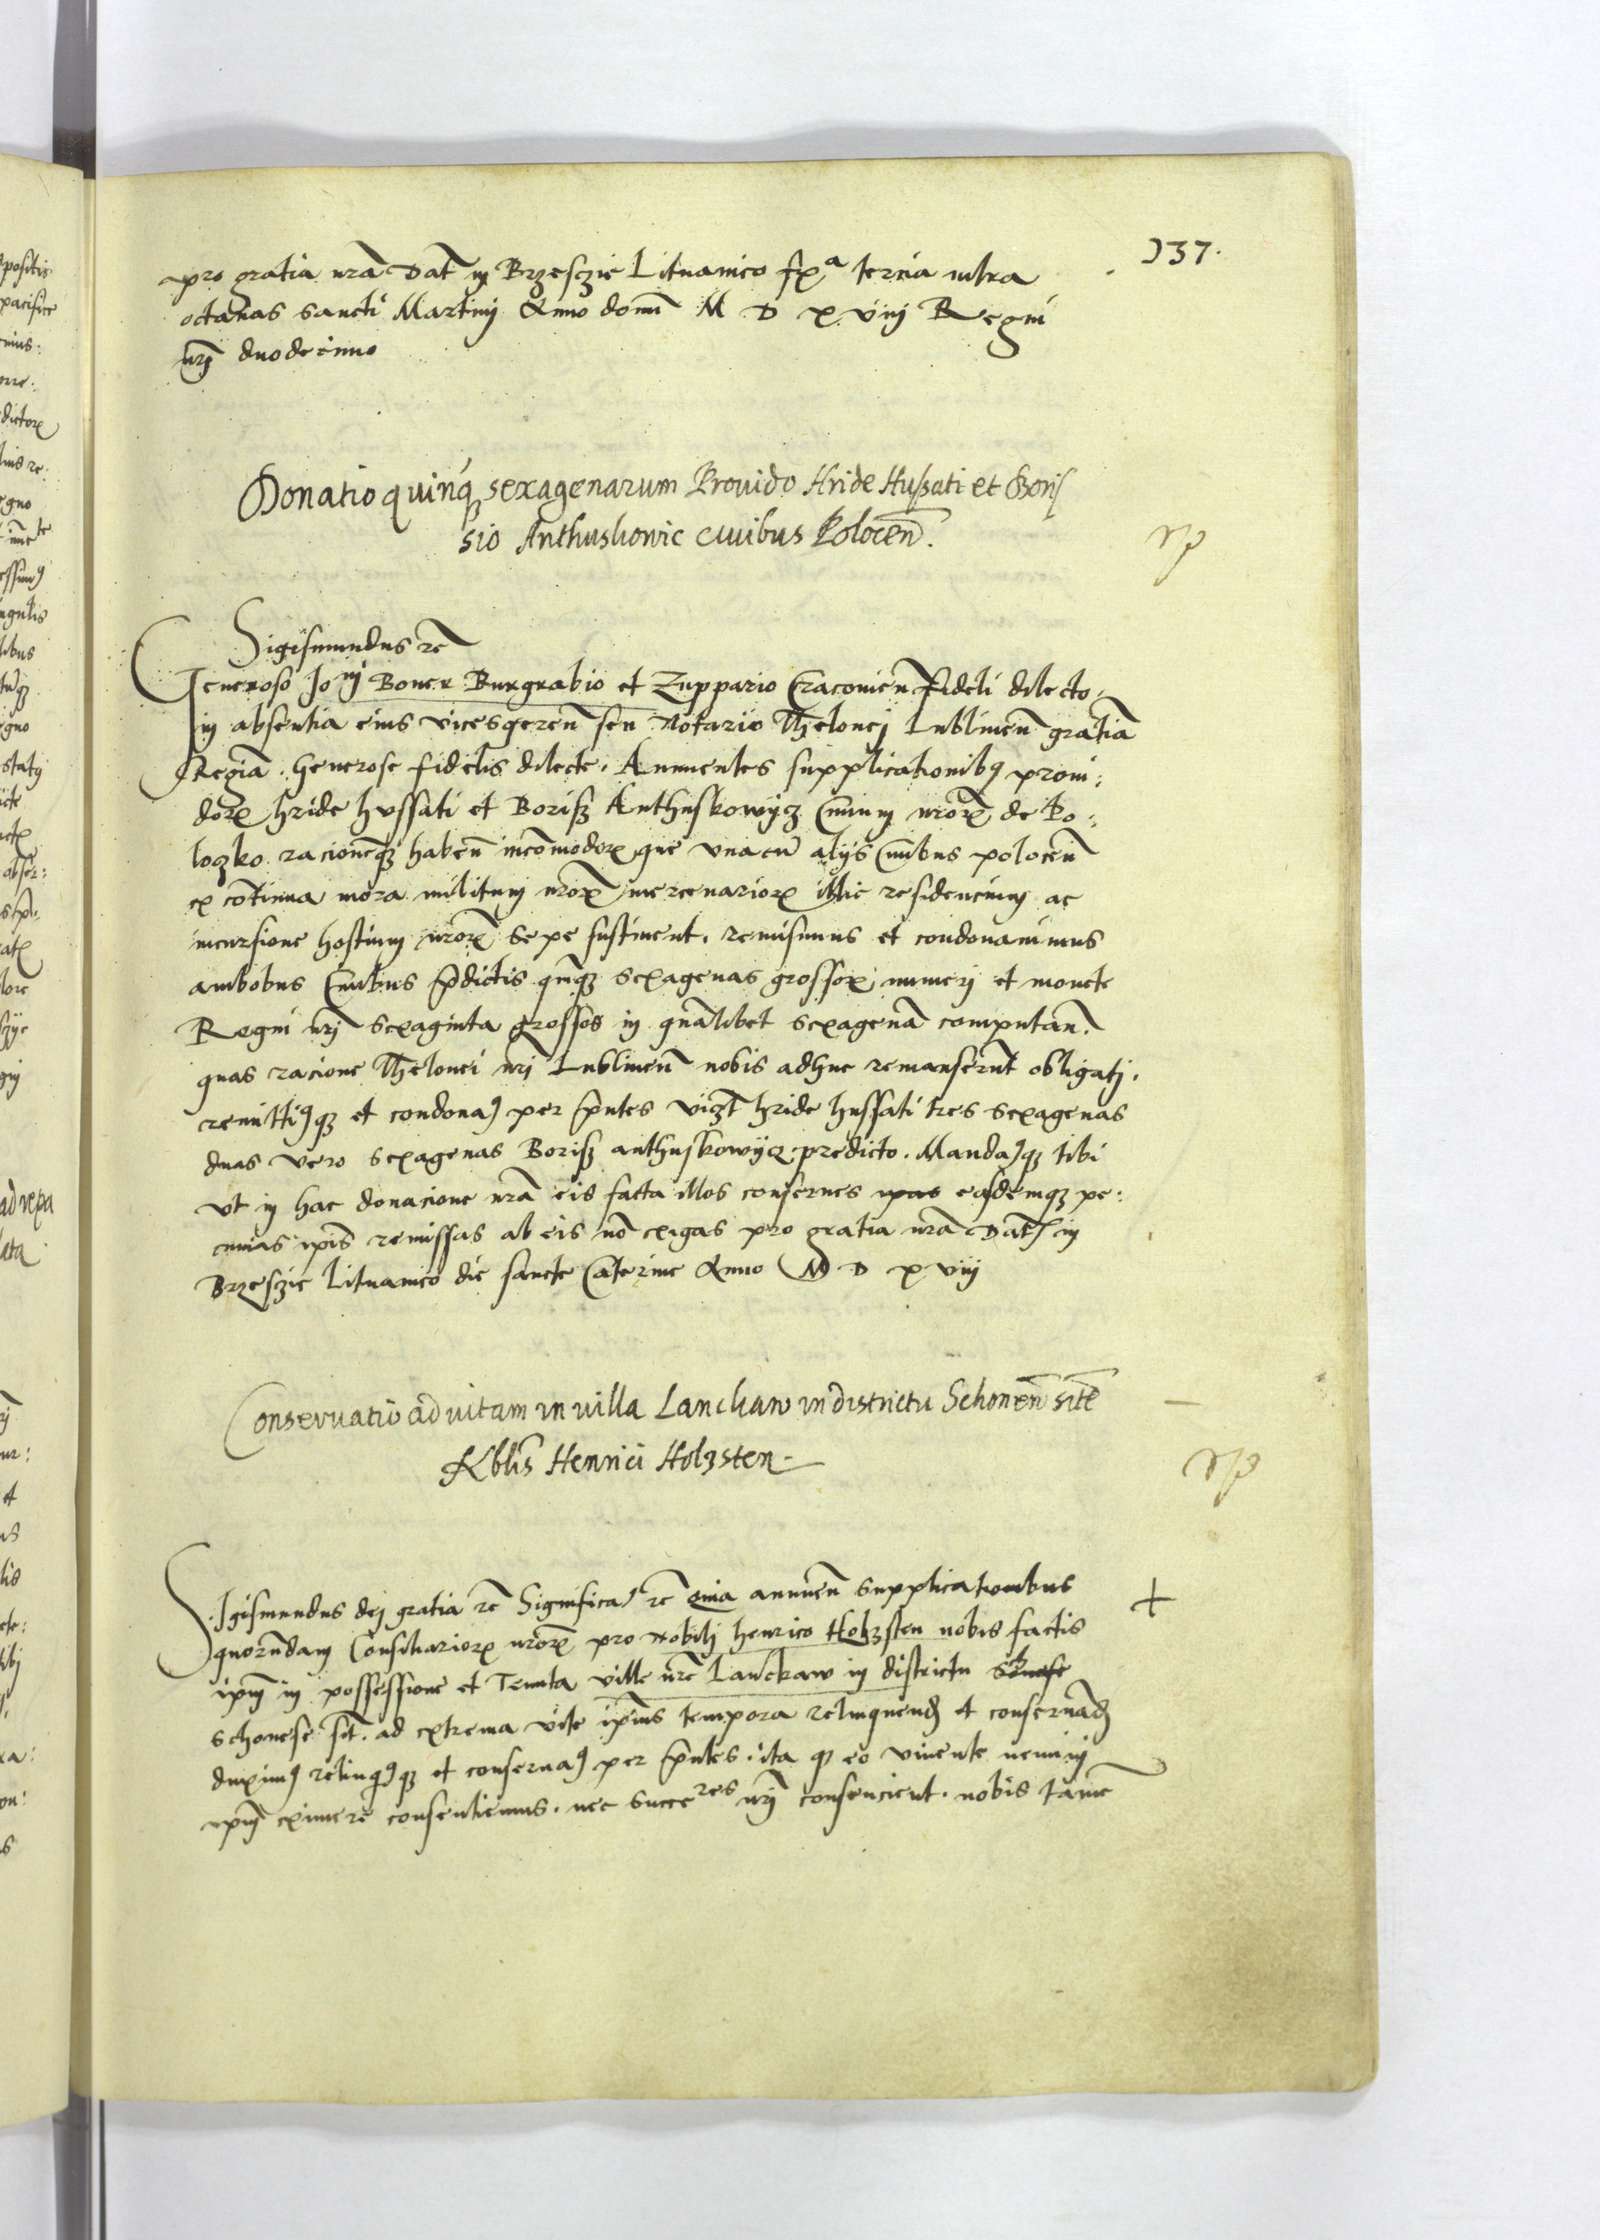 137.
pro gratia nrā Dat̄ in Brzesczie Lituanico fxᵃ tercia infra
octavas Sancti Martinj Anno domī M D X viij Regni
nrj duodecimo
Donatio quinq̨ sexagenarum Prouido Hride Hussati et Boris
sio Anthuskowic ciuibus Polocen̄.
Sigismundus rē
Generoso Joⁿⁱ Boner Burgrabio et Zuppario Cracouien̄ fideli dilecto,
in absentia eius vicesgeren̄ seu Notario Thelonej Lublinen̄ gratiā
Regiā. Generose fidelis dilecte. Annuentes supplicationibꝰ proui:
dorꝝ hride hussati et Borisz Anthuskowycz Ciuium nrorꝝ de Po:
loczko racionemqꝫ haben̄ incōmodorꝝ que vnacū alijs Ciuibus polocen̄
ex cōtinua mora militum nrorꝝ mercenariorꝝ illic residencium ac
incursione hostium nrorꝝ sepe sustinent. remisimus et condonauimus
ambobus Ciuibus p̄dictis quīqꝫ sexagenas grossorꝝ numerj et monete
Regni nrj sexaginta grossos in quālibet sexagenā computan̄.
quas racione Thelonei nrj Lublinen̄ nobis adhuc remanserūt obligatj.
remittiꝰqꝫ et condonaꝰ per p̄ntes vizt hride hussati tres sexagenas
duas vero sexagenas Borisz anthuskowycz predicto. Mandaꝰqꝫ tibi
vt in hac donacione nrā eis facta illos conserues easdemqꝫ pe:
cunias ip̄is remissas ab eis nō exigas pro gratia nrā Dat̄ in
Brzesczie Lituanico die sancte Caterine Anno M D X viij
Conseruatio ad vitam in villa Lanckaw in districtu Schonen̄ sitē
Nblis Henrici Holzsten
Sigismundus dej gratia rē Significaꝰ rē Quia annuen̄ supplicationibus
quorūdam Consiliariorꝝ nrorꝝ pro Nobilj henrico Holzsten nobis factis
ip̄m in possessione et Tenuta ville nrē Lanckaw in districtu
schonese sit̄. ad extrema vite ip̄ius tempora relinquend̄ et conseruād̄
duximꝰ relinqꝰqꝫ et conseruaꝰ per p̄ntes. ita qꝫ eo viuente neminj
ip̄m eximere consentiemus. nec succeʳᵉˢ nrj consencient. nobis tamē